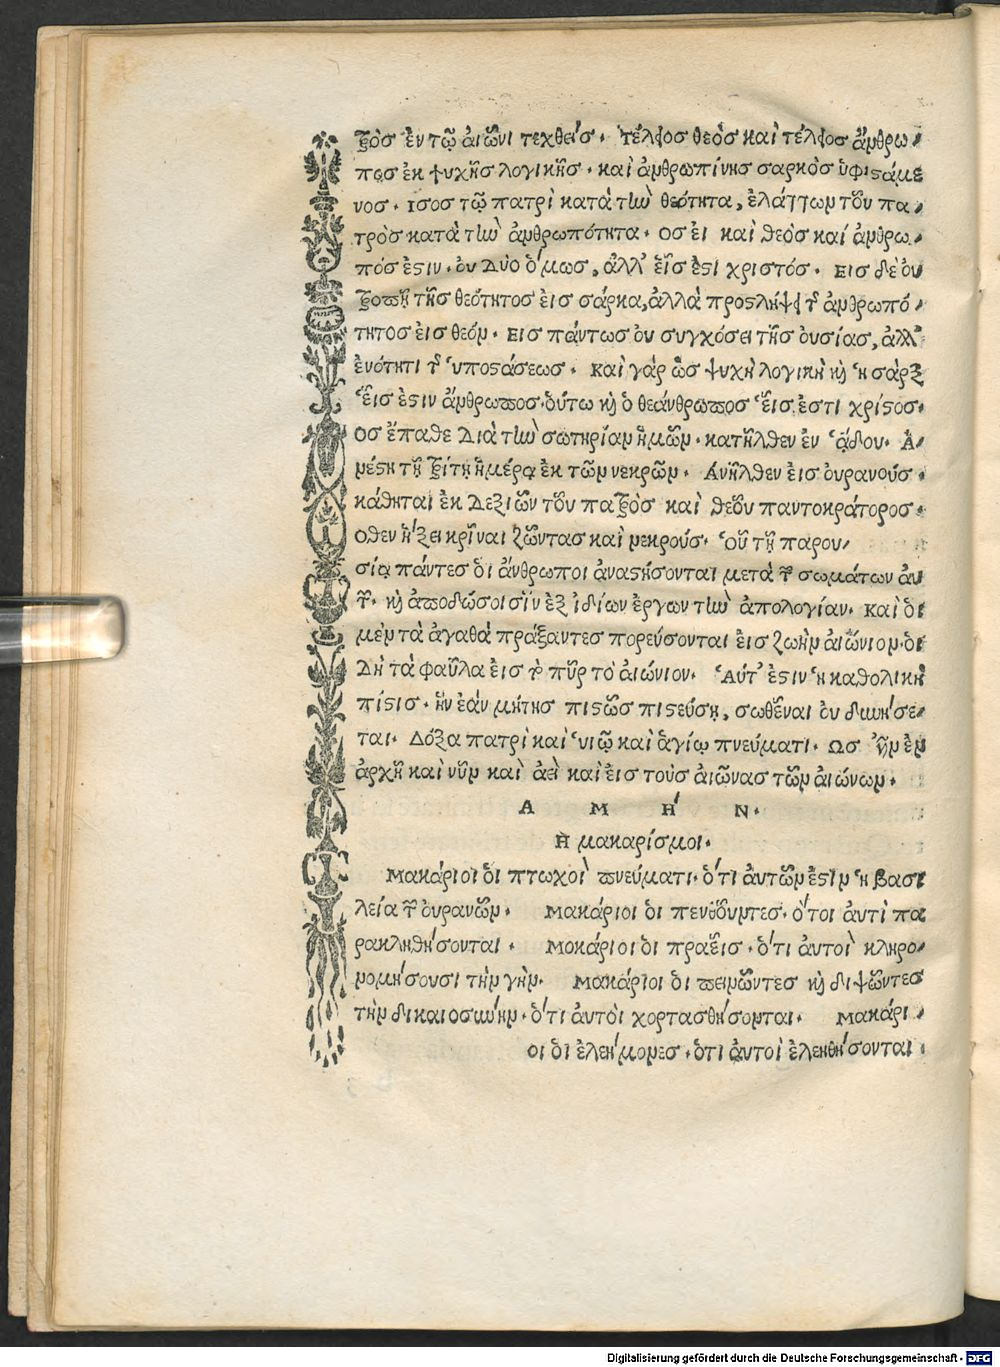 τρὸς ἐν τῷ ἀιῶνι τεχθείς. Τέλειος θεὸς καὶ τέλειος ἄνθρω
πος ἐκ ψυχῆς λογικῆς. καὶ ἀνθρωπίνης σαρκὸς ὑφιστάμε
νος. Ισος τῷ πατρὶ κατὰ τὴν θεότητα, ἐλάττων τοῦ πα
τρὸς κατὰ τὴν ἀνθρωπότητα. Ος εἰ καὶ θεὸς καί ἄνθρω
πός ἐστιν. ὀυ Δύο ὅμως, ἀλλ' εἷς ἐστι χριστός. Εις δε ὀυ
τροπῇ τῆς θεότητος ἐις σάρκα, ἀλλὰ προσλήψει τῆς ἀνθρωπό
τητος ἐις θεόν. Εις πάντως ὀυ συγχόσει τῆς ὀυσίας, ἀλλ'
ἑνότητι τῆς ὑποστάσεως. Καὶ γάρ ὡς ψυχὴ λογικὴ καὶ ἡ σὰρξ
εἷς ἐστιν ἄνθρωπος. ὅυτω καὶ ὁ θεάνθρωπος εἷς ἐστι χρίστος.
Ος ἔπαθε Διὰ τὴν σωτηρίαν ἡμῶν. κατῆλθεν ἐν ᾅδου. Α
νέστη τῇ τρίτῃ ἡμέρᾳ ἐκ τῶν νεκρῶν. Ανῆλθεν ἐις ὀυρανούς.
κάθηται ἐκ Δεξιῶν τοῦ πατρὸς καὶ θεοῦ παντοκράτορος.
Οθεν ἥξει κρῖναι ζῶντας καὶ νεκρούς. Οὗ τῇ παρου
σίᾳ πάντες ὁι ἄνθρωποι ἀναστήσονται μετὰ τῶν σωμάτων ἀυ
τῶν. καὶ ἀποδώσοισιν ἐξ ἰδίων ἔργων τὴν ἀπολογίαν. Καὶ ὁι
μὲν τὰ ἀγαθὰ πράξαντες πορεύσονται ἐις ζωὴν ἀιώνιον. ὁι
Δὴ τὰ φαῦλα ἐις τὸ πῦρ τὸ ἀιώνιον. Αὕτ' ἐστιν ἡ καθολικὴ
πίστις. ἣν ἐάν μήτης πιστῶς πιστεύσῃ, σωθῆναι ὀυ δυνήσε
ται. Δόξα πατρὶ καὶ ὑιῷ καὶ ἁγίῳ πνεύματι. Ως ἦν ἐν
ἀρχῇ καὶ νῦν καὶ ἀεὶ καὶ ἐις τοὺς ἀιῶνας τῶν ἀιώνων.
Α Μ Ή Ν.
Ἡ μακαρίσμοι.
Μακάριοι ὁι πτωχοὶ πνεύματι. ὅτι ἀυτῶν ἐστιν ἡ βασι
λεία τῶν ὀυρανῶν. Μακάριοι ὁι πενθοῦντες. ὅτοι ἀυτὶ πα
ρακληθήσονται. Μοκάριοι ὁι πραεῖς. ὅτι ἀυτοὶ κληρο
νομήσουσι τὴν γὴν. Μακάριοι ὁι πεινῶντες καὶ διψῶντες
τὴν δικαιοσύνην. ὅτι ἀυτὸι χορτασθήσονται. Μακάρι
οι ὁι ἐλεήμονες. ὅτι ἀυτοὶ ἐλεηθήσονται.
Digitalisierung gefördert durch die Deutsche Forschungsgemeinschaft - DFG